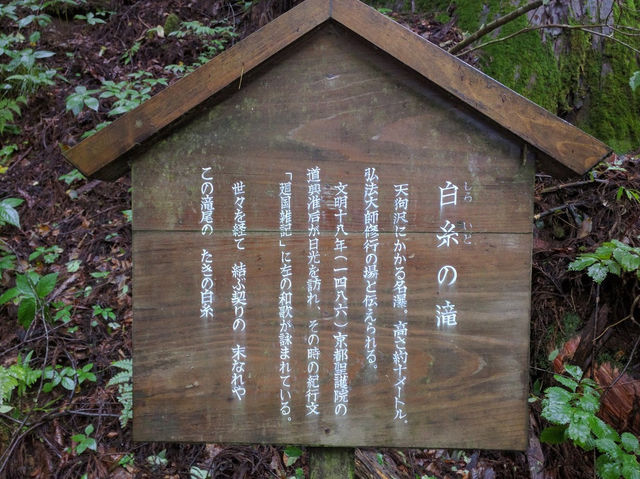 しら いと
白糸の滝
天狗沢にかかる名瀑。高さ約十メートル。
弘法大師修行の場と伝えられる。
文明十八年(一四八六)京都聖護院の
道興准后が日光を訪れ、その時の紀行文
「廻国雑記」に左の和歌が詠まれている。
世々を経て 結ぶ契りの 末なれや
この滝尾の たきの白糸